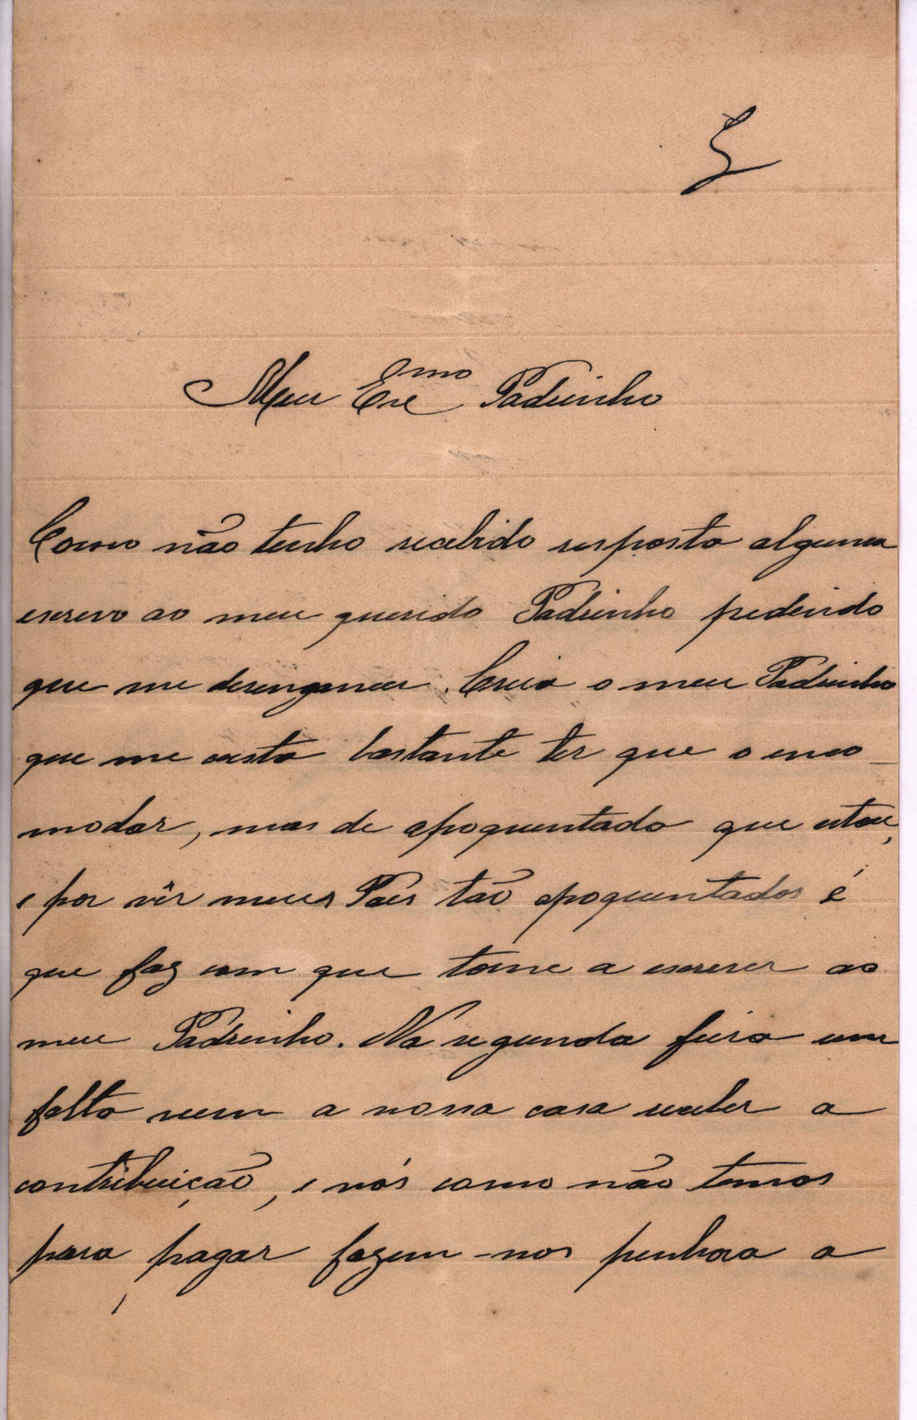 Meu Exmo Padrinho
Como não tenho recebido resposta alguma
escrevo ao meu querido Padrinho pedindo
que me desengane. Creia o meu Padrinho
que me custa bastante ter que o inco-
modar, mas de apoquentado que estou,
e por vêr meus Paes tão apoquentados é
que faz com que torne a escrever ao
meu Padrinho. Na segunda feira sem
falta vem a nossa casa receber a
contribuição, e nós como não temos
para pagar fazem-nos penhora a